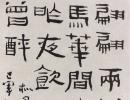 翩翩兩
馬華間
昨夜飲
曾醉